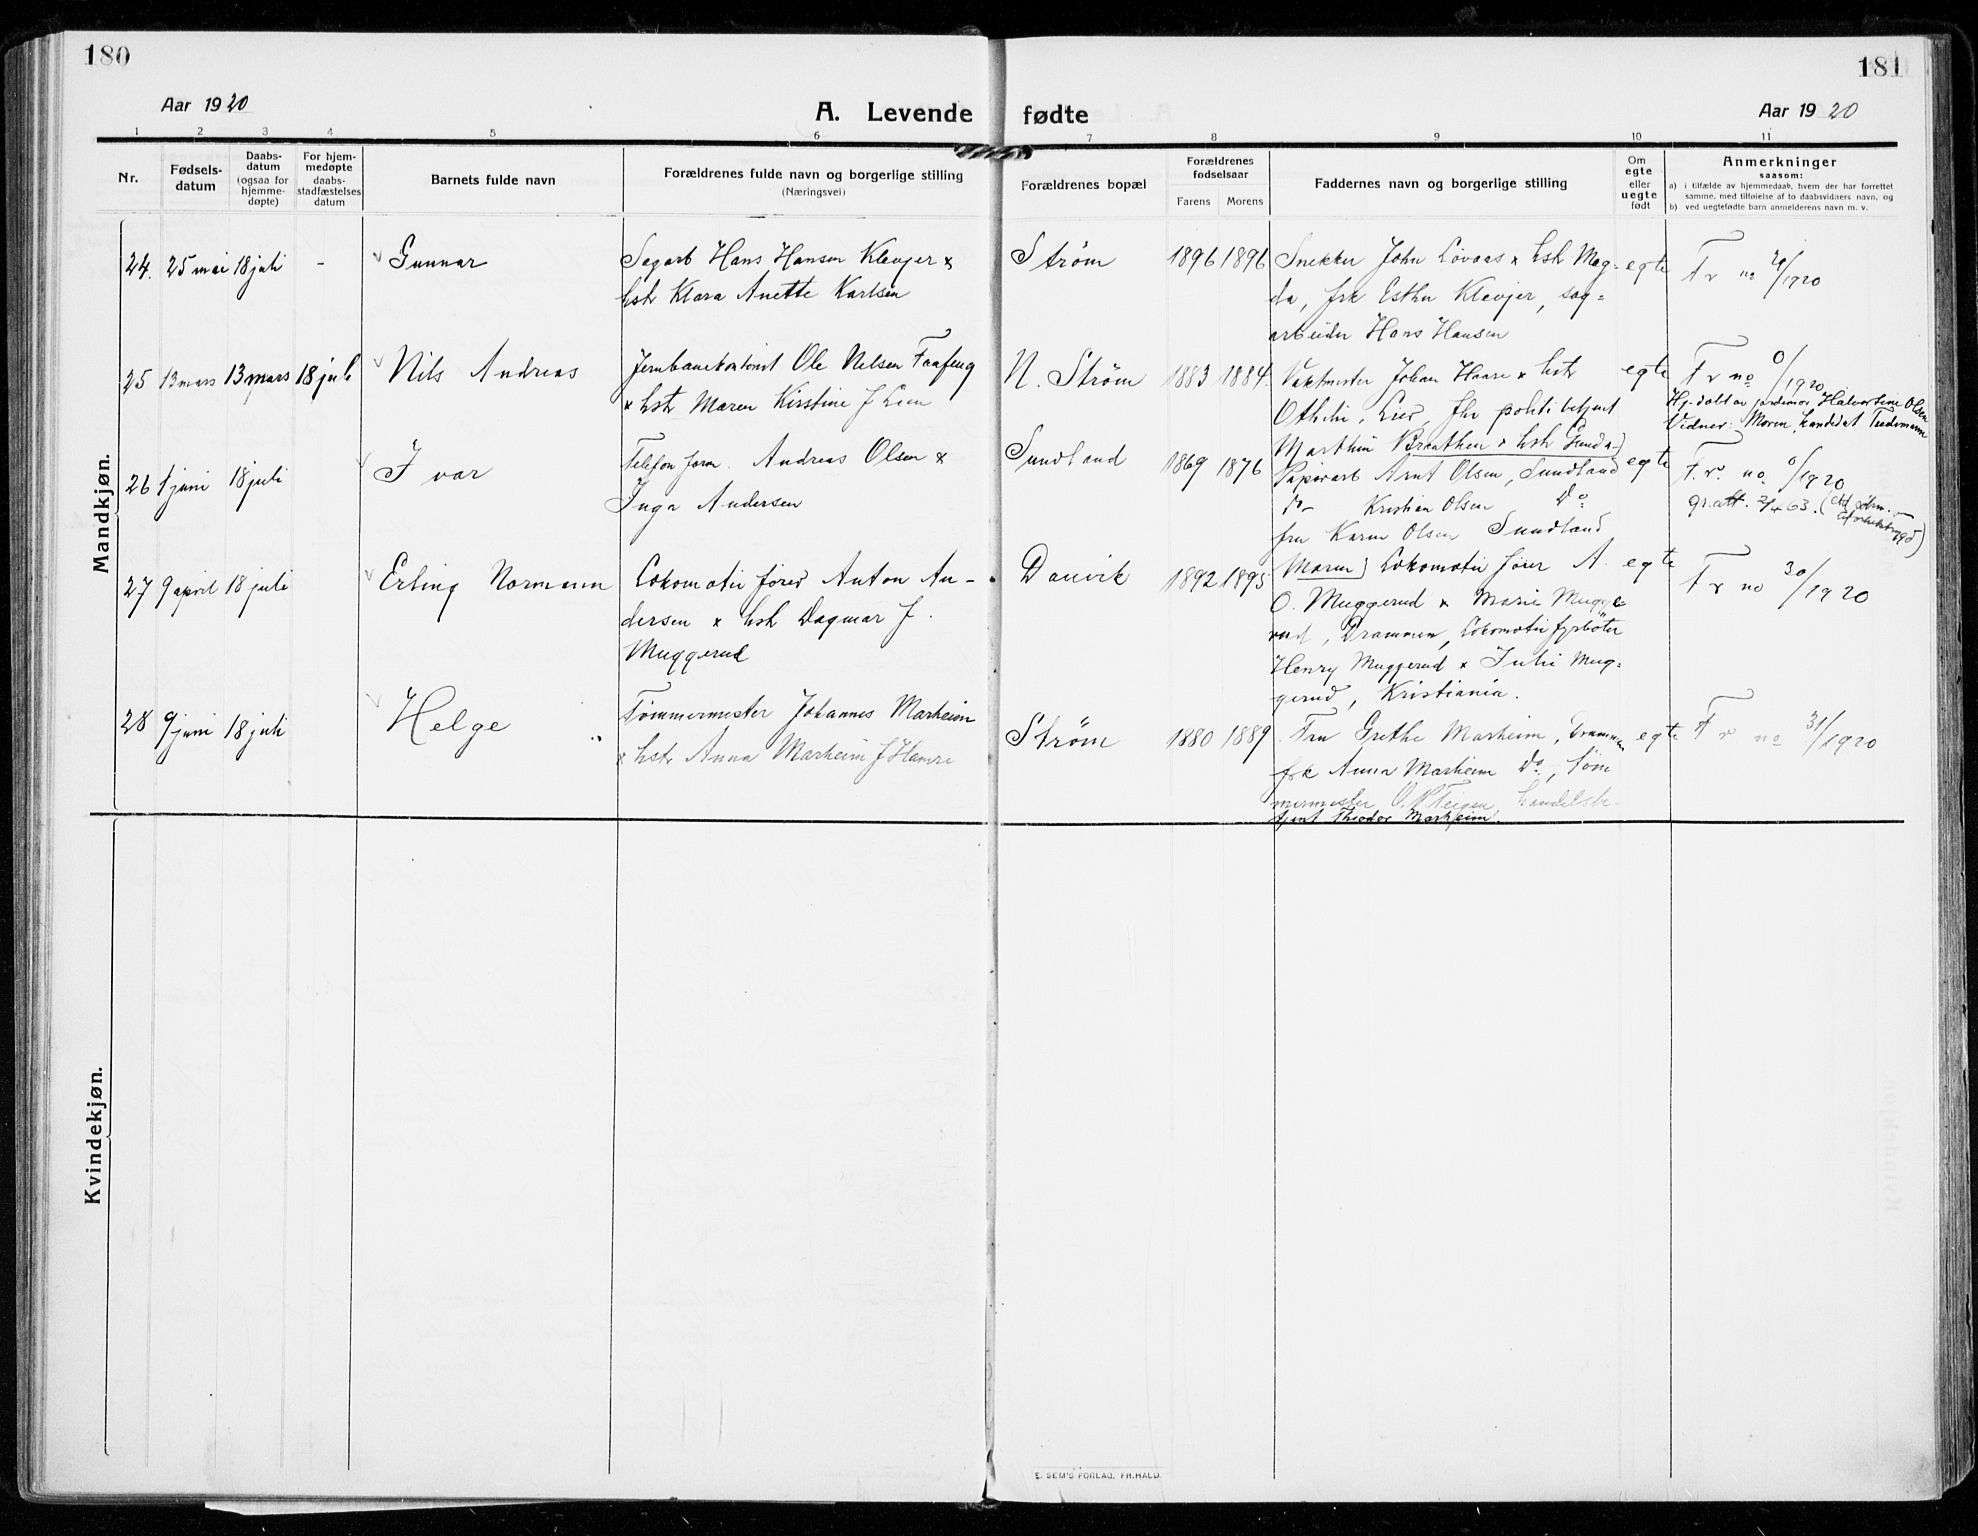 180
181
Aar 1920
A. Levende fødte
Aar 1920
1 2 3 4 5 6 7 8 9 10 11
Nr.
Fødsels-
datum
Daabs-
datum
(ogsaa for
hjemme-
døpte)
For hjem-
medøpte
daabs-
stadfæstelses
datum
Barnets fulde navn
Forældrenes fulde navn og borgerlige stilling
(Næringsvei)
Forældrenes bopæl
Forældrenes
fødselsaar
Farens Morens
Faddernes navn og borgerlige stilling
Om
egte
eller
uegte
født
Anmerkninger
saasom:
a) i tilfælde av hjemmedaab, hvem der har forrettet
samme, med tilføielse af to daabsvidners navn, og
b) ved uegtefødte barn anmelderens navn m. v.
Mandkjøn.
24. 25 mai 18 juli - Gunnar
Sagarb Hans Hansen Klevjer x
hstr Klara Anette Karlsen
Strøm 1896 1896
Snekker John Lövaas x hstr Mag-
da, frk Esther Klevjer, sag=
arbeider Hans Hansen
egte
Fr no 29/1920
25 13 mars 13 mars 18 juli Nils Andreas
Jernbanekontorist Ole Nilsen Faafeng
x hstr Maren Kirstine f Lien
N. Strøm 1883 1884
Vaktmester Johan Haare x hstr
Othilie, Lier, Fhv politibetjent
Marthin Braathen x hstr Gunda
egte
Fr no 0/1920
Hj. døbt av jordmor Halvordine Olsen
Vidner: Moren, kandidat Tiedemann
26 1 juni 18 juli Ivar
Telefonform. Andreas Olsen x
Inga Andersen
Sundland 1869 1876
Papirarb Arnt Olsen, Sundland
Do- Kristian Olsen Do
fru Karen Olsen Sundland
egte
Fr. no. 0/1920
gr. att. 2/4 63.
27 9 april 18 juli Erling Normann
Lokomotivfører Anton An-
dersen x hstr Dagmar f.
Muggerud
Danvik 1892 1895
Maren) Lokomotivfører A.
O. Muggerud x Marie Mugge=
rud, Drammen, Lokomotivfyrbøter
Henry Muggerud x Julie Mug=
gerud, Kristiania.
egte
Fr no 30/1920
28 9 juni 18 juli Helge
Tømmermester Johannes Marheim
x hstr Anna Marheim f Hamre
Strøm 1880 1889
Fru Grethe Marheim, Drammen
frk Anna Marheim Do, tøm
mermester O. P. Teigen, handelsbe-
tjent Theodor Marheim.
egte
Fr no 31/1920
Kvindekjøn.
E. SEM'S FORLAG, FR.HALD.